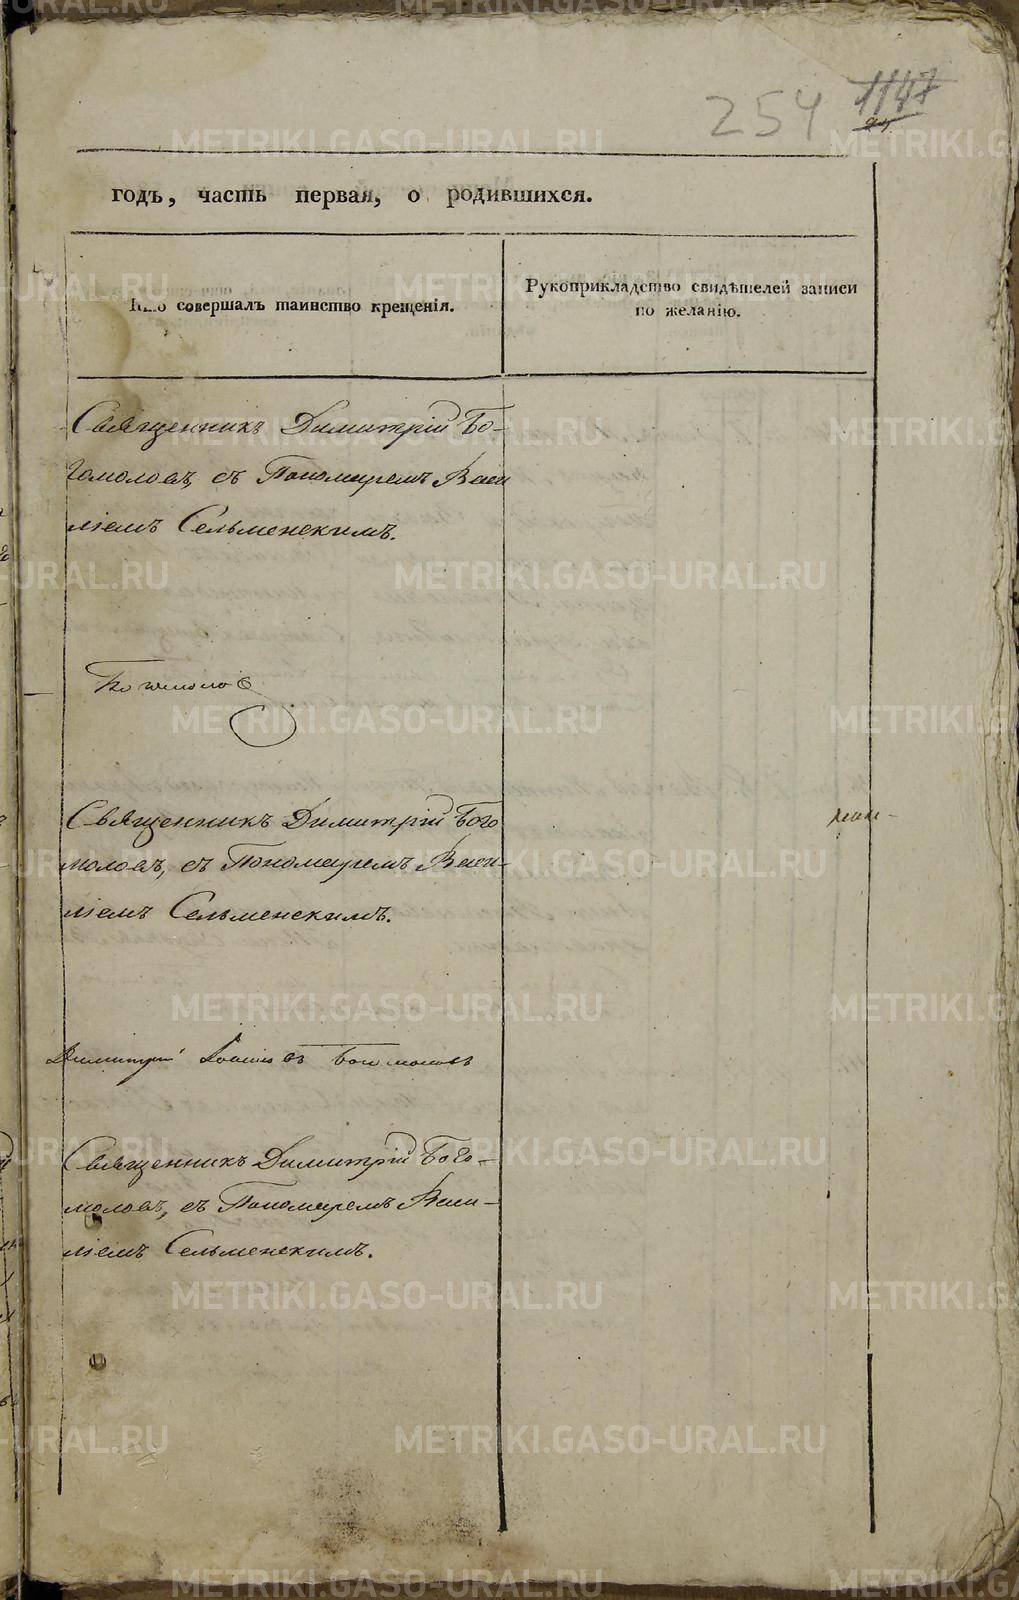 254 1147
годъ, часть первая, о родившихся.
Кто совершалъ таинство крещенія.
Рукоприкладство свидѣтелей записи
по желанію.
Священникъ Димитрій Бо-
гомоловъ, съ Пономаремъ Васи
ліемъ Сельменскимъ.
Богомолов
Священникъ Димитрій Бого
моловъ, съ Пономаремъ Васи-
ліемъ Сельменскимъ.
Димитрій Богомоловъ
Священникъ Димитрій Бого-
моловъ, съ Пономаремъ Васи-
ліемъ Сельменскимъ.
METRIKI.GASO-URAL.RU